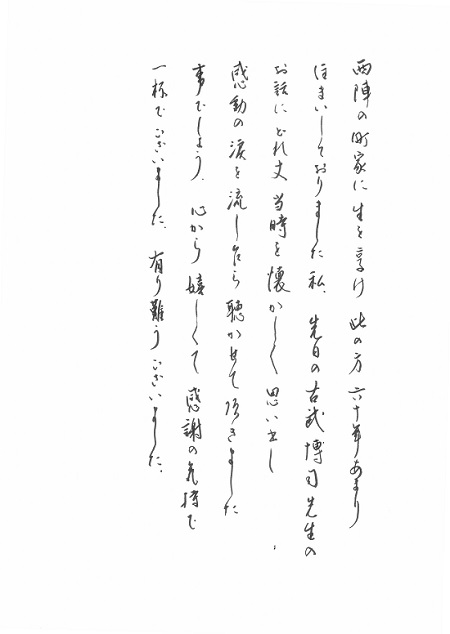 西陣の町家に生を享け此の方六十年あまり
住まいしておりました私、先日の古武博司先生の
お話にどれ丈当時を懐かしく思い出し
感動の涙を流し乍ら聴かせて頂きました
事でしょう。心から嬉しくて感謝の気持で
一杯でございました。有り難うございました。